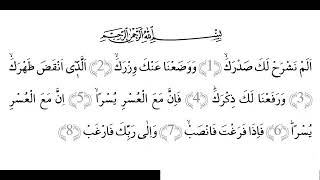 بِسْمِ اللّٰهِ الرَّحْمٰنِ الرَّحِيمِ
اَلَمْ نَشْرَحْ لَكَ صَدْرَكَۙ ﴿1﴾ وَوَضَعْنَا عَنْكَ وِزْرَكَۙ ﴿2﴾ اَلَّذ۪ٓي اَنْقَضَ ظَهْرَكَۙ
﴿3﴾ وَرَفَعْنَا لَكَ ذِكْرَكَۜ ﴿4﴾ فَاِنَّ مَعَ الْعُسْرِ يُسْراًۙ ﴿5﴾ اِنَّ مَعَ الْعُسْرِ
يُسْراًۜ ﴿6﴾ فَاِذَا فَرَغْتَ فَانْصَبْۙ ﴿7﴾ وَاِلٰى رَبِّكَ فَارْغَبْ ﴿8﴾